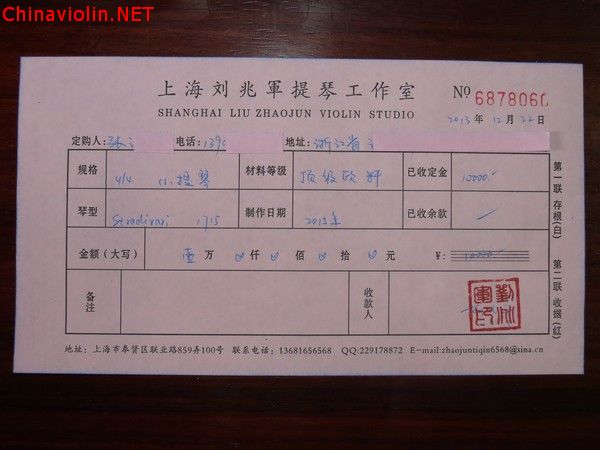 Chinaviolin.NET
上海刘兆軍提琴工作室
SHANGHAI LIU ZHAOJUN VIOLIN STUDIO
№ 6878060
2013 年 12 月 22 日
定购人: 张 电话: 139 地址: 浙江省
规格 4/4 小提琴 材料等级 顶级欧料 已收定金 10000.-
琴型 Stradivari 1715 制作日期 2013年 已收余款
金额（大写） 壹 万 0 仟 0 佰 0 拾 0 元 ¥: 10000.-
备注 收款人
第一联 存根(白) 第二联 收据(红)
地址: 上海市奉贤区联业路859弄100号 联系电话: 13681656568 QQ:229178872 E-mail:zhaojuntiqin6568@sina.cn